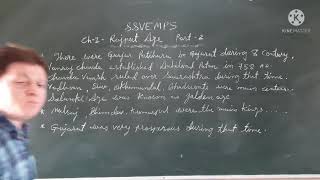 SSVEMPS
Ch-1- Rajput Age Part-2
• There were Gurjar Patihara in Gujarat during 8 Century,
Vanraj chavda established Anhalvad Patan in 750 AD.
Chavda Vansh ruled over Saurashtra during that time.
were main centers.
Solanki Age was known as golden age
• Mulraj, Bhimdev, Kumarpal were the main kings....
* Gujarat was very prosperous during that time.
KINEMASTER